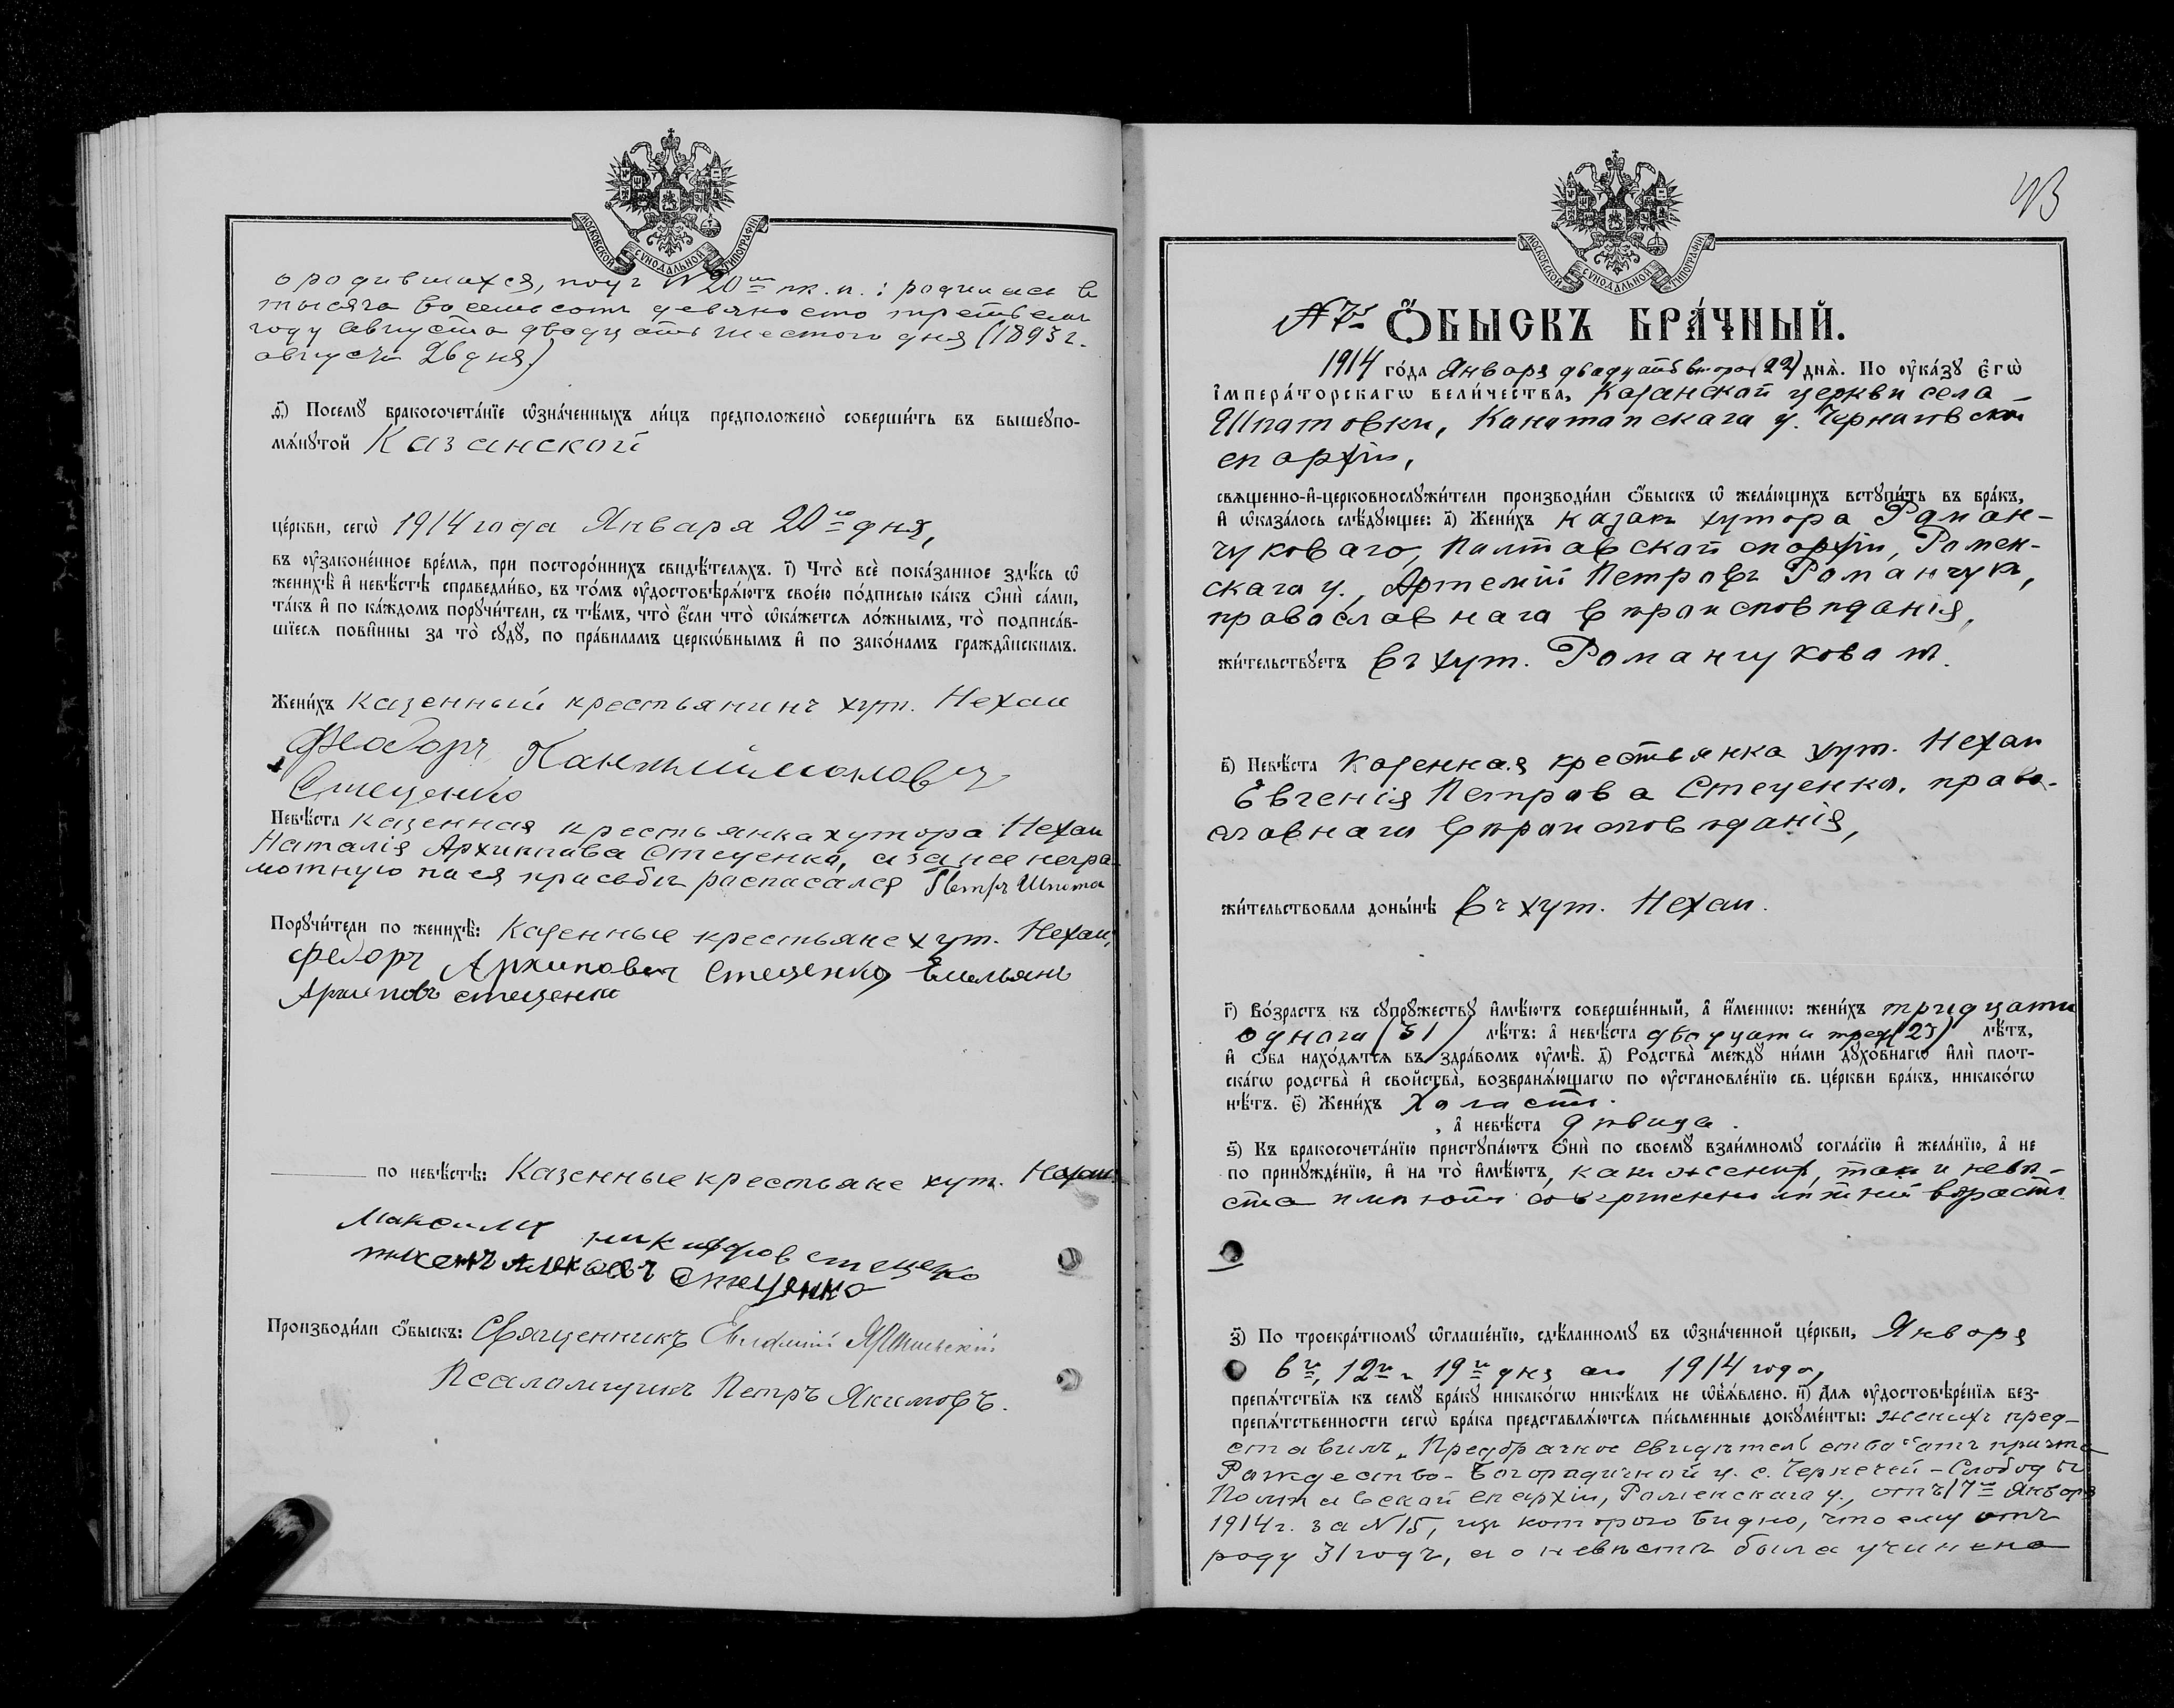 МОСКОВСКОЙ СѴНОДАЛЬНОЙ ТИПОГРАФІИ
о родившихся, подъ N 20 ж. п.: родилась въ
тысяча восемьсотъ девяносто третьемъ
году августа двадцать шестого дня (1893 г.
августа 26 дня)
ѳ҃) Посемꙋ бракосочета́нїе ѡзна́ченныхъ ли́цъ предположено̀ соверши́ть въ вышеупо-
мѧ́нутой Казанской
це́ркви, сегѡ̀ 1914 года Января 20го дня,
въ ᲂу҆законе́нное вре́мѧ, при посторо́ннихъ свидѣ́телѧхъ. і҃) Что̀ всѐ пока́занное здѣ́сь ѡ҆
женихѣ̀ и҆ невѣ́стѣ справедли́во, въ то́мъ ᲂу҆достовѣрѧ́ютъ свое́ю по́дписью ка́къ ѻ҆нѝ са́ми,
та́къ и҆ по ка́ждомъ поручи́тели, съ тѣ́мъ, что̀ є҆́сли что̀ ѡ҆ка́жется ло́жнымъ, то̀ подписа́в-
шїеся пови́нны за то̀ сꙋдꙋ̀, по пра́виламъ церкѡ́внымъ и҆ по зако́намъ гражда́нскимъ.
Жени́хъ казенный крестьянинъ хут. Нехаи
Феодоръ Пантилимоновъ
Стеценко
Невѣ́ста казенная крестьянка хутора Нехаи
Наталія Архиппова Стеценко, а за нее негра-
мотную по ея просьбѣ росписался Петръ
Порꙋчи́тели по женихѣ̀: Казенные крестьяне хут. Нехаи,
Федоръ Архиповъ Стеценко Емельянъ
Архиповъ стеценко
по невѣ́стѣ: Казенные крестьяне хут. Нехаи
Максимъ никифоров стеценко
Стеценко
Производи́ли ѻ҆́быскъ: Священникъ Евфимій
Псаломщикъ Петръ Якимовъ.
МОСКОВСКОЙ СѴНОДАЛЬНОЙ ТИПОГРАФІИ
N 7й Ѻ҆́БЫСКЪ БРА́ЧНЫЙ.
1914 го́да Января двадцать второго (22) днѧ̀. По ᲂу҆ка́зꙋ Є҆гѡ̀
І҆мпера́торскагѡ вели́чества, Казанской церкви села
Шпатовки, Конотопскаго у. Черниговской
епархіи,
свѧщенно-и҆-церковнослꙋжи́тели производи́ли ѻ҆́быскъ ѡ҆ жела́ющихъ встꙋпи́ть въ бра́къ,
и҆ ѡ҆каза́лось слѣ́дующее: а҃) Жени́хъ казакъ хутора Роман-
чуковаго, Полтавской епархіи, Ромен-
скаго у., Артемій Петровъ Романчукъ,
православнаго вѣроисповѣданія,
жи́тельствꙋетъ въ хут. Романчуковом.
в҃) Невѣ́ста казенная крестьянка хут. Нехаи
Евгенія Петрова Стеценко, право-
славнаго вѣроисповѣданія,
жи́тельствовала доны́нѣ въ хут. Нехаи.
г҃) Во́зрастъ къ сꙋпрꙋ́жествꙋ и҆мѣ́ютъ соверше́нный, а҆ и҆́меннѡ: жени́хъ тридцати
одного (31) лѣ́тъ: а҆ невѣ́ста двадцати трех (23) лѣ́тъ,
и҆ ѻ҆́ба нахо́дѧтся въ здра́вомъ ᲂу҆мѣ̀. д҃) Родства̀ междꙋ ни́ми дꙋхо́внагѡ и҆лѝ плот-
ска́гѡ родства̀ и҆ свойства̀, возбранѧ́ющагѡ по ᲂу҆становле́нїю св. це́ркви бра́къ, никако́гѡ
нѣ́тъ. є҃) Жени́хъ холостъ.
, а҆ невѣ́ста дѣвица.
ѕ҃) Къ бракосочета́нїю пристꙋпа́ютъ ѻ҆нѝ по своемꙋ̀ взаи́мномꙋ согла́сїю и҆ жела́нїю, а҆ не
по принꙋжде́нїю, и҆ на то̀ и҆мѣ́ютъ, какъ женихъ, такъ и невѣ-
ста имѣютъ совершеннолѣтній возрастъ
з҃) По троекра́тномꙋ ѡ҆глаше́нїю, сдѣ́ланномꙋ въ ѡ҆зна́ченной це́ркви, Января
6го, 12го и 19го дня сего 1914 года,
препѧ́тствїя къ семꙋ̀ бра́кꙋ никако́гѡ никѣ́мъ не ѡ҆бъѧ́влено. и҃) Длѧ ᲂу҆достовѣре́нїя без-
препѧ́тственности сегѡ̀ бра́ка представлѧ́ются пи́сьменные докꙋме́нты: женихъ пред-
ставилъ „Предбрачное свидѣтельство" отъ причта
Рождество-Богородичной ц. с. Чернечей-Слободы
Полтавской епархіи, Роменскаго у., отъ 17го Января
1914 г. за N 15, изъ которого видно, что ему отъ
роду 31 годъ, а о невѣстѣ была учинена